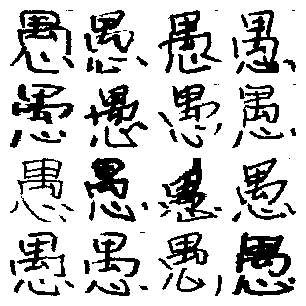 愚愚愚愚
愚愚愚愚
愚愚愚愚
愚愚愚愚